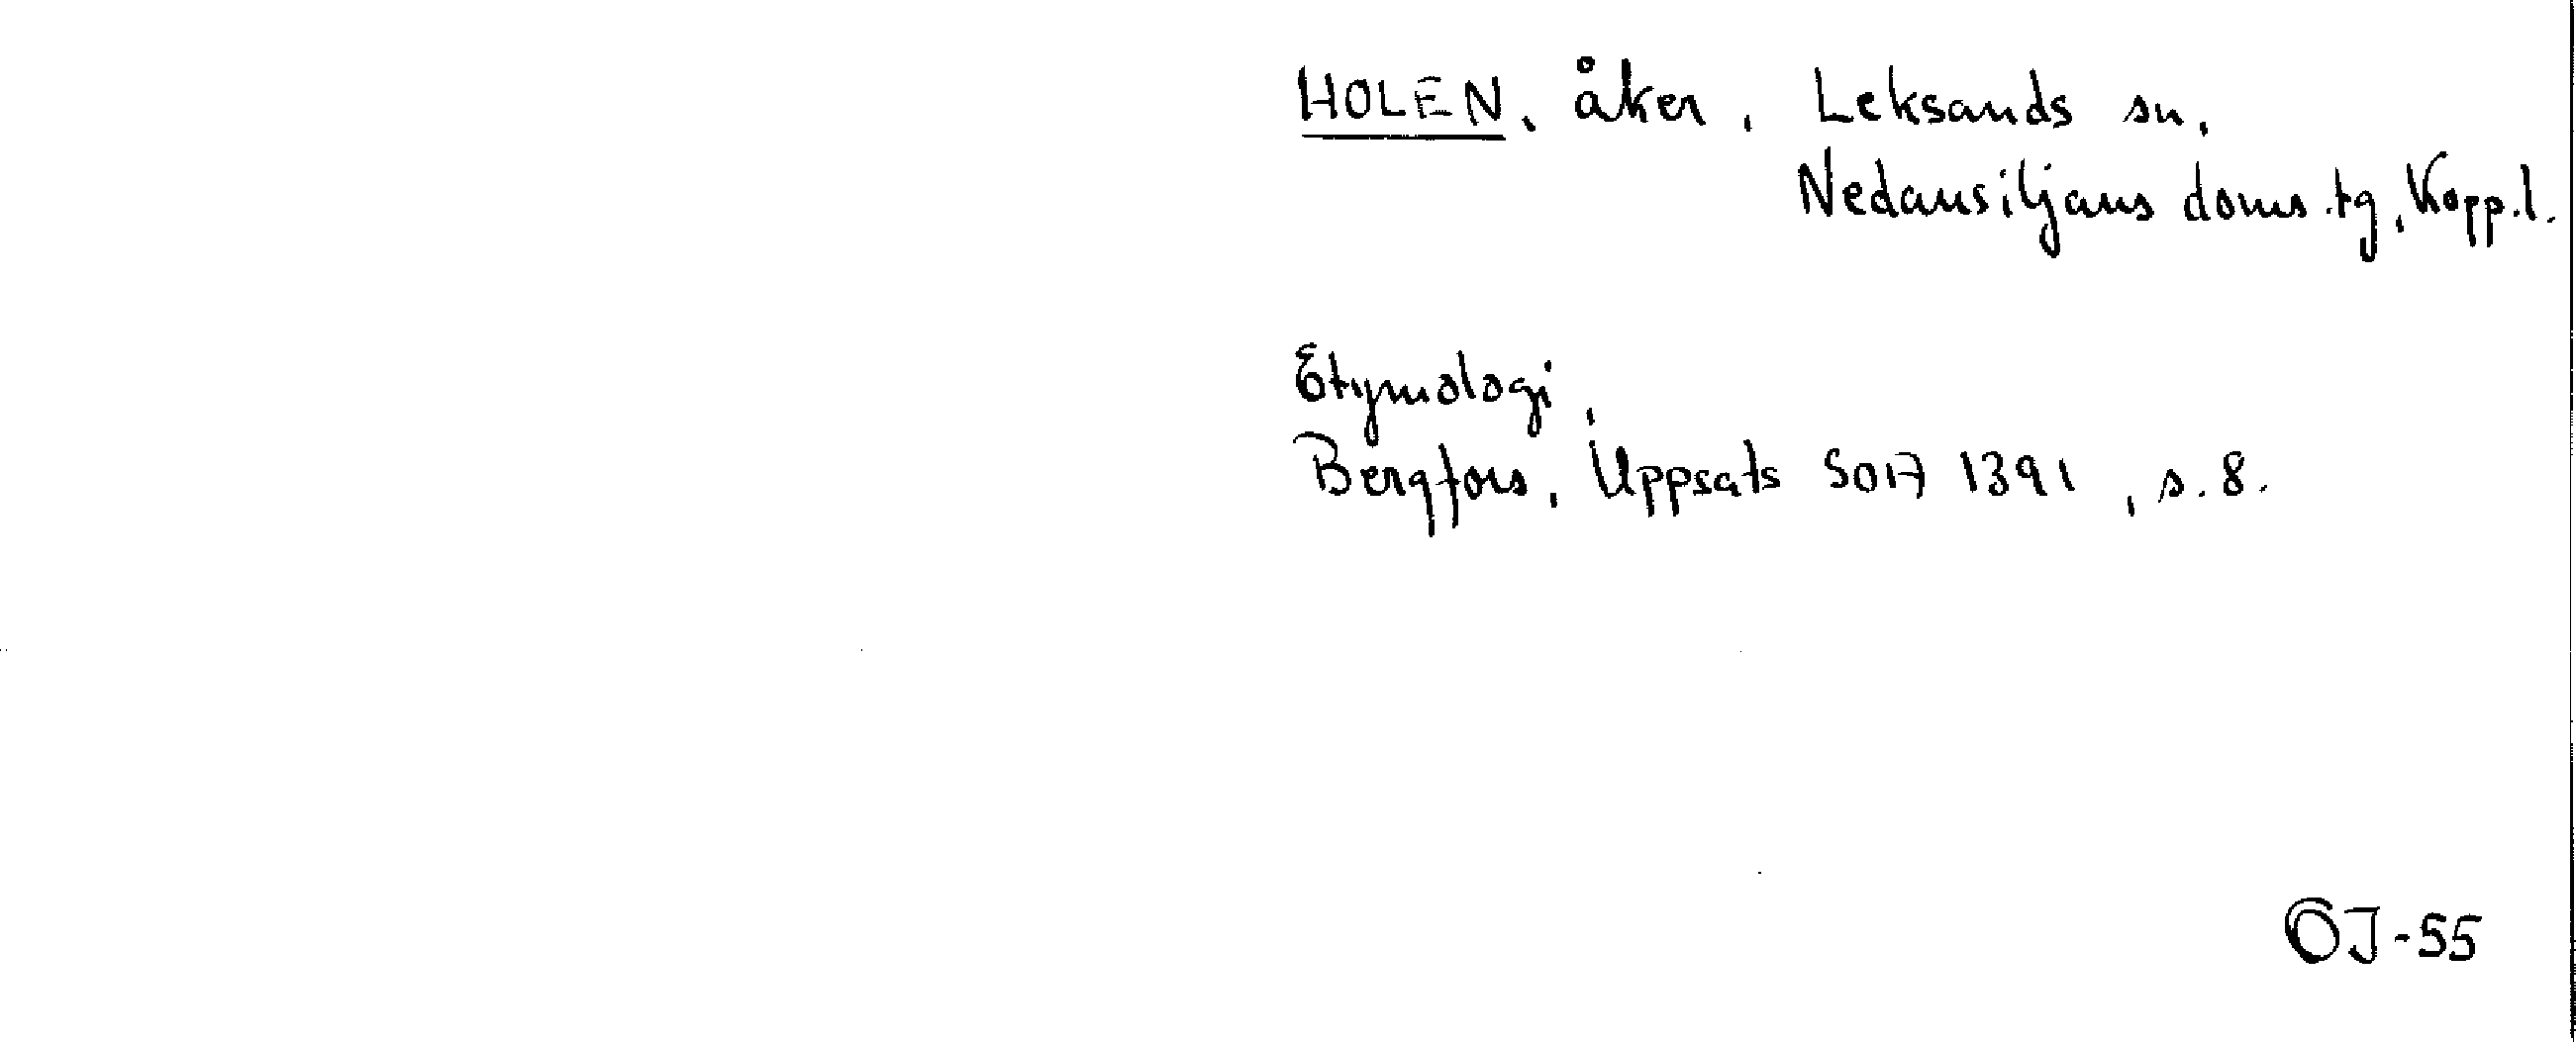 HOLEN, åker, Leksands sn,
Nedansiljans doms.tg, Kopp.l.
Etymologi,
Bergfors, Uppsats SOA 1391, s. 8.
OJ-55